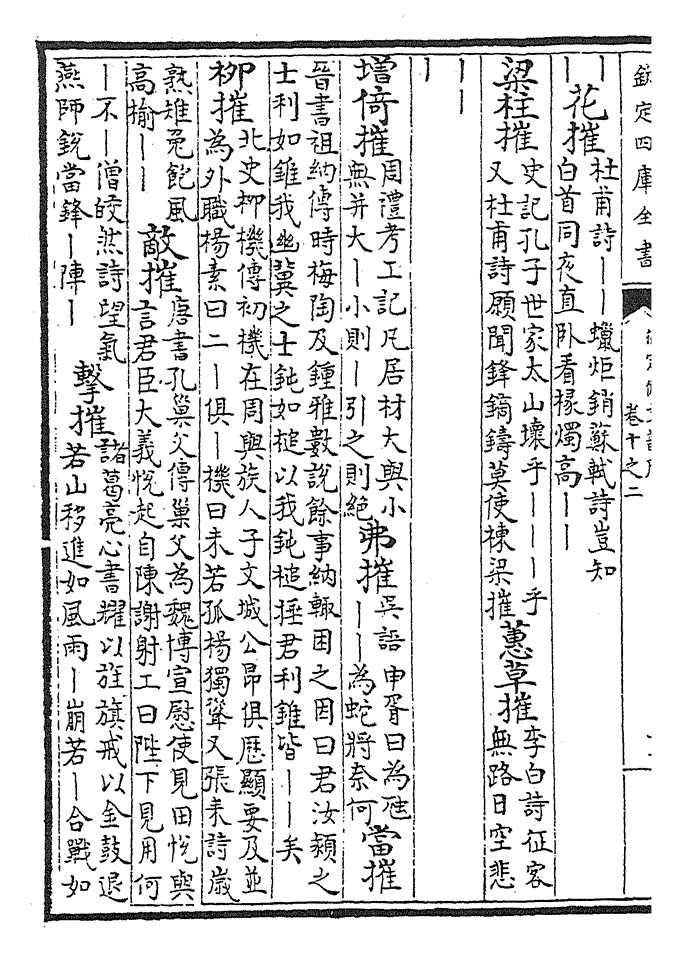 欽定四庫全書
卷十之二
｜
｜
花摧
杜甫詩｜｜蠟炬銷蘇軾詩豈知
白首同夜直卧看椽燭高｜｜
梁柱摧
史記孔子世家太山壞乎｜｜｜乎
又杜甫詩願聞鋒鏑鑄莫使棟梁摧
蕙草摧
李白詩征客
無路日空悲
｜｜
｜
增倚摧
周禮考工記凡居材大與小
無并大｜小則｜引之則絶
弗摧
吳語申胥曰為虺
｜｜為蛇將奈何
當摧
晉書祖納傳時梅陶及鍾雅數說餘事納輒困之因曰君汝潁之
士利如錐我幽冀之士鈍如槌以我鈍槌捶君利錐皆｜｜矣
柳摧
北史柳機傳初機在周與族人子文城公昂俱歷顯要及並
為外職楊素曰二｜俱｜機曰未若孤楊獨聳又張耒詩歲
熟雉兔飽風
高榆｜｜
敵摧
唐書孔巢父傳巢父為魏博宣慰使見田悅與
言君臣大義悅起自陳謝射工曰陛下見用何
｜不｜僧皎然詩望氣
燕師銳當鋒｜陣｜
擊摧
諸葛亮心書耀以旌旗戒以金鼓退
若山移進如風雨｜崩若｜合戰如